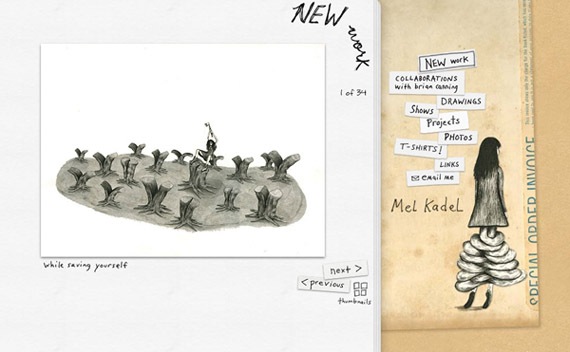 NEW
work
1 of 34
while saving yourself
next >
< previous
thumbnails
NEW work
COLLABORATIONS
with brian canning
DRAWINGS
Shows
Projects
PHOTOS
T-SHIRTS!
LINKS
email me
Mel Kadel
SPECIAL ORDER INVOICE